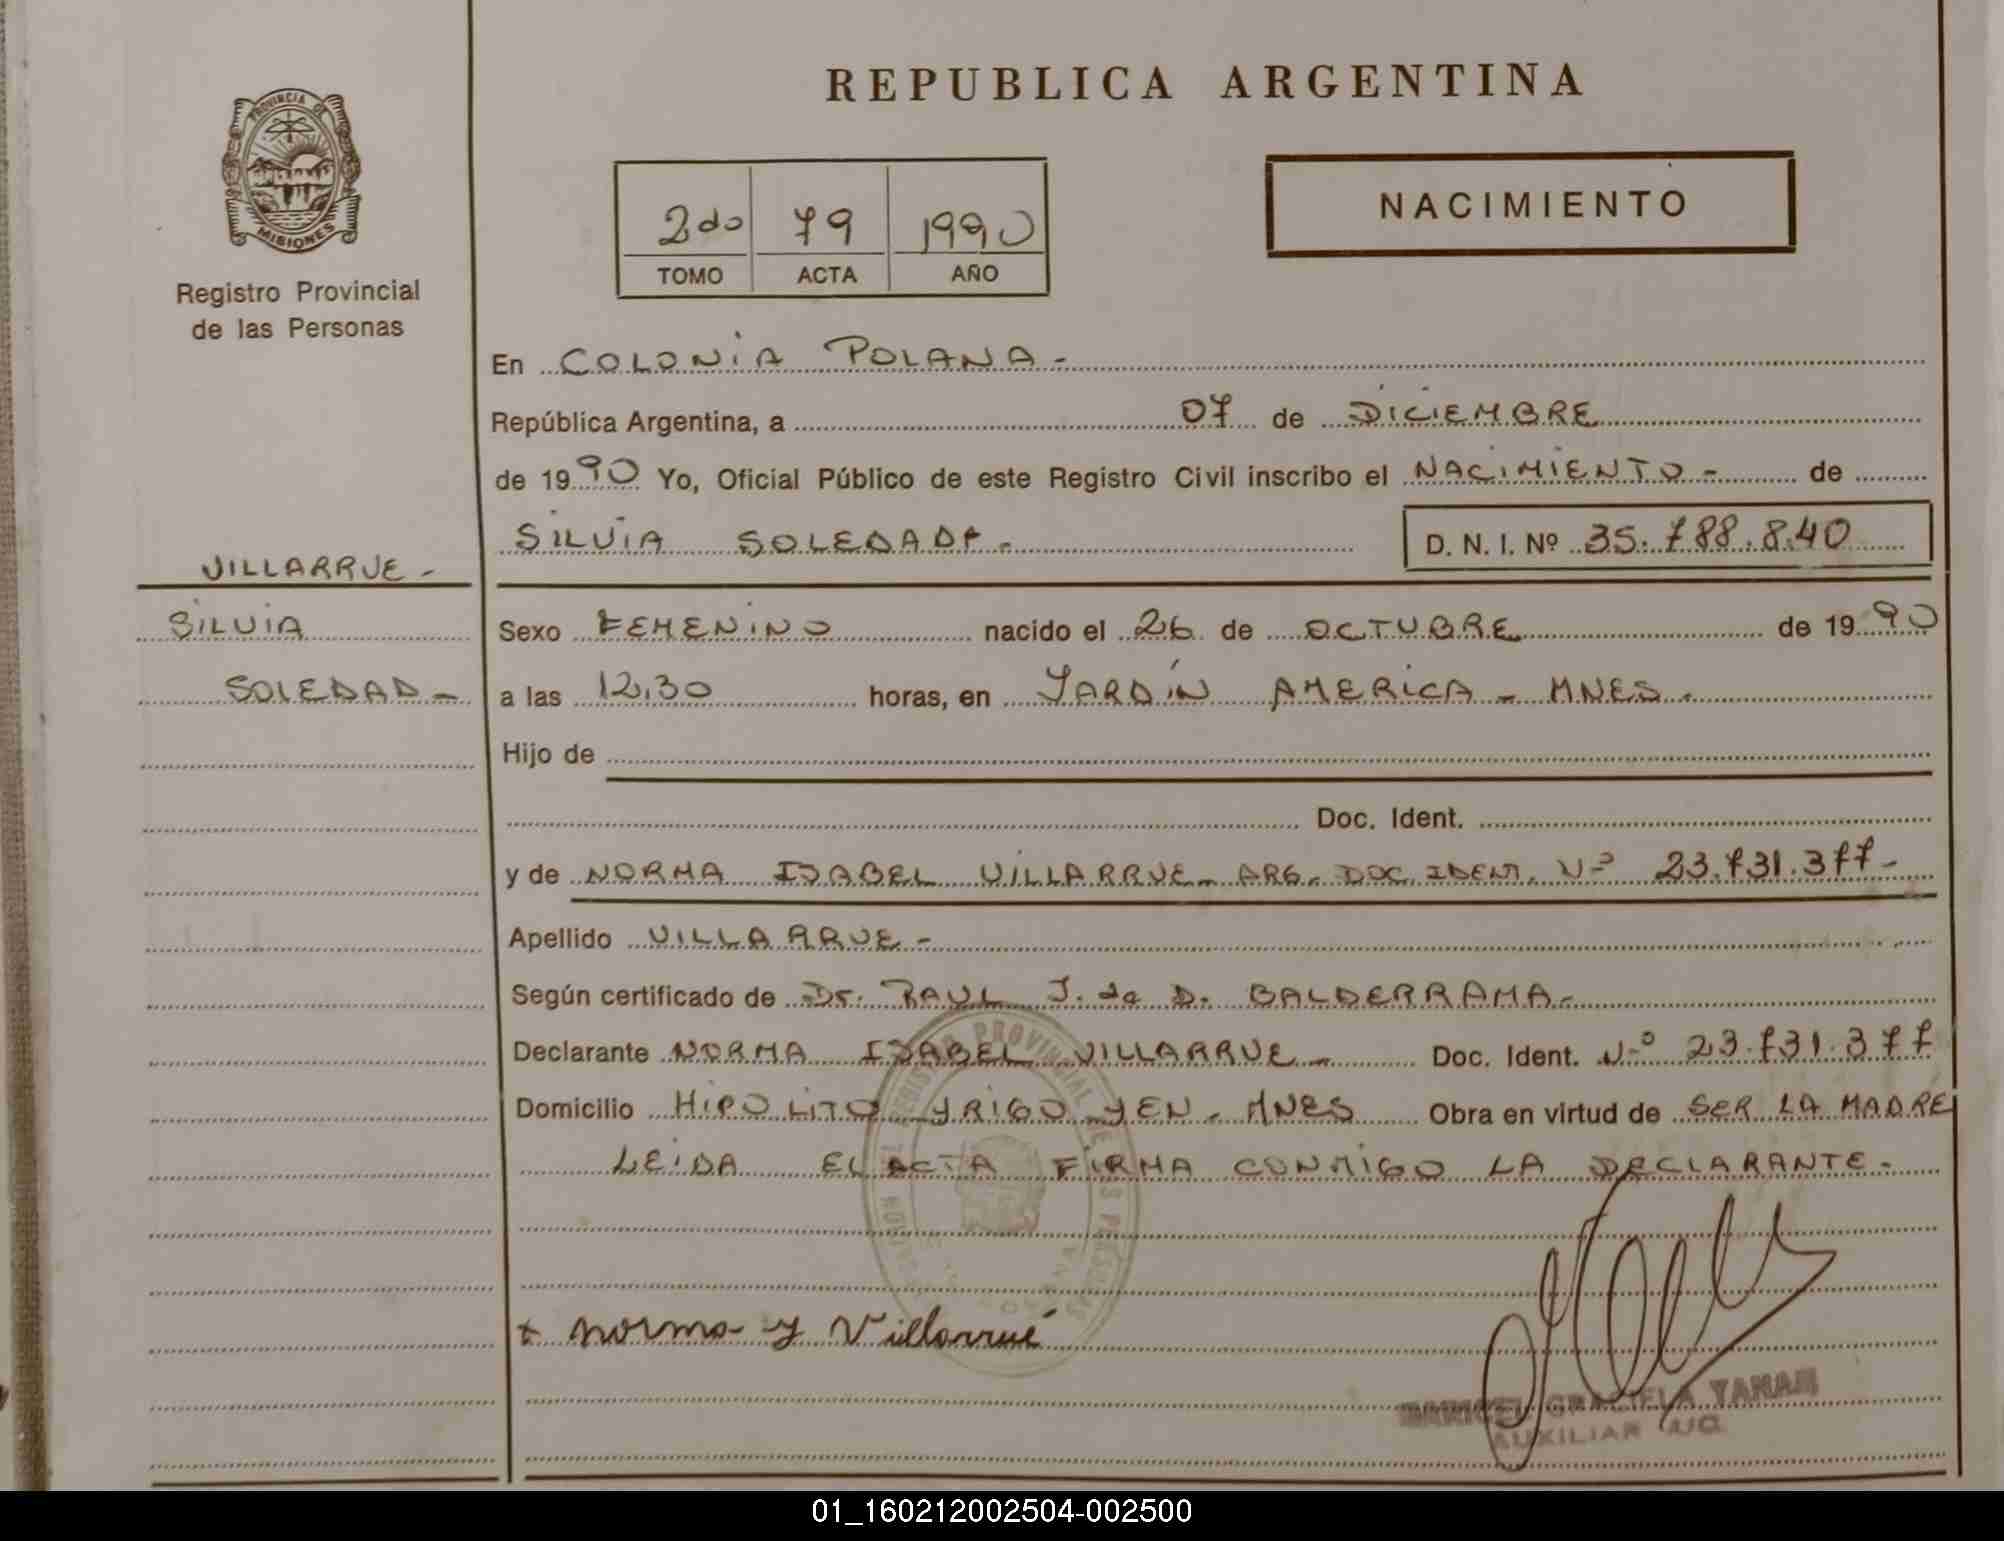 REPUBLICA ARGENTINA
PROVINCIA DE
MISIONES
Registro Provincial
de las Personas
2do 79 1990
TOMO ACTA AÑO
NACIMIENTO
En COLONIA POLANA -
República Argentina, a 07 de DICIEMBRE
de 1990 Yo, Oficial Público de este Registro Civil inscribo el NACIMIENTO - de
SILVIA SOLEDAD -
D. N. I. Nº 35.788.840
VILLARRUE -
SILVIA
SOLEDAD -
Sexo FEMENINO nacido el 26 de OCTUBRE de 1990
a las 12,30 horas, en JARDIN AMERICA - MNES -
Hijo de
Doc. Ident.
y de NORMA ISABEL VILLARRUE - ARG. DOC. IDENT. Nº 23.731.377 -
Apellido VILLARRUE -
Según certificado de Dr. RAUL J. de D. BALDERRAMA -
Declarante NORMA ISABEL VILLARRUE - Doc. Ident. Nº 23.731.377
Domicilio HIPOLITO YRIGOYEN - MNES Obra en virtud de SER LA MADRE
LEIDA EL ACTA FIRMA CONMIGO LA DECLARANTE -
+ Norma y Villarrué
GRACIELA YANAM
AUXILIAR
01_160212002504-002500